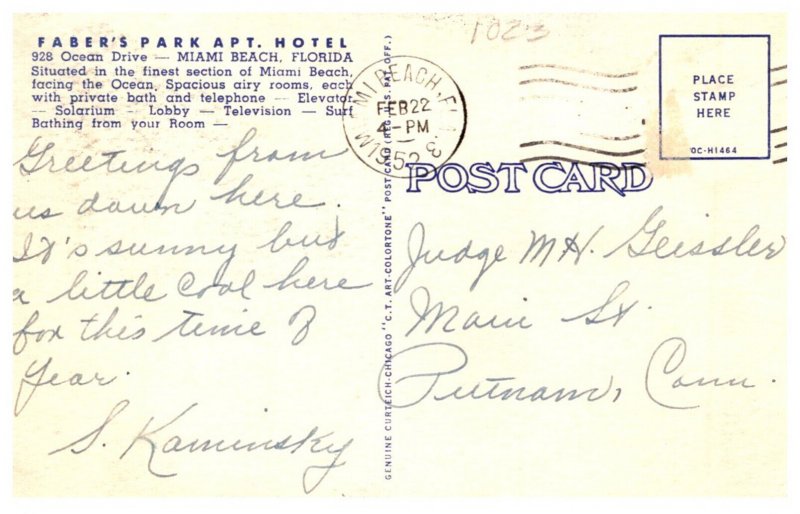 1023
FABER'S PARK APT. HOTEL
928 Ocean Drive — MIAMI BEACH, FLORIDA
Situated in the finest section of Miami Beach,
facing the Ocean, Spacious airy rooms, each
with private bath and telephone — Elevator
— Solarium — Lobby — Television — Surf
Bathing from your Room —
MI BEACH, FL
FEB 22
4-PM
1952
PLACE
STAMP
HERE
OC-H1464
POST CARD
Greetings from
us down here.
It's sunny but
a little cool here
for this time of
year.
S. Kaminsky
GENUINE CURTEICH-CHICAGO "C.T. ART-COLORTONE" POST CARD (REG. U.S. PAT. OFF.)
Judge M H. Geissler
Main St.
Putnam, Conn.